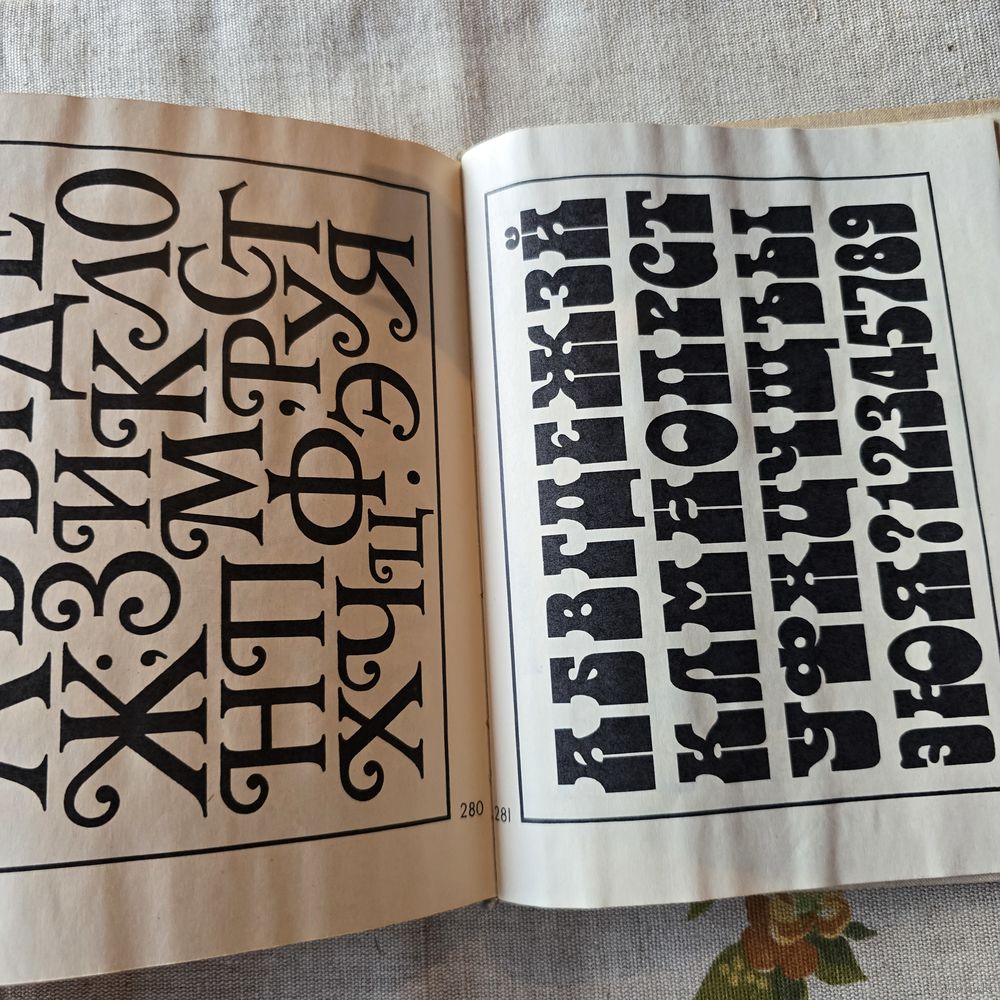 АБВГДЕ
ЖЗИКЛО
НПМРСТ
ХЧЦФУЭЯ
280
281
АБВГДЕЖЗЙ
КЛМНОПРСТ
УФХЦЧЩЪЫ
ЭЮЯ!?12345789